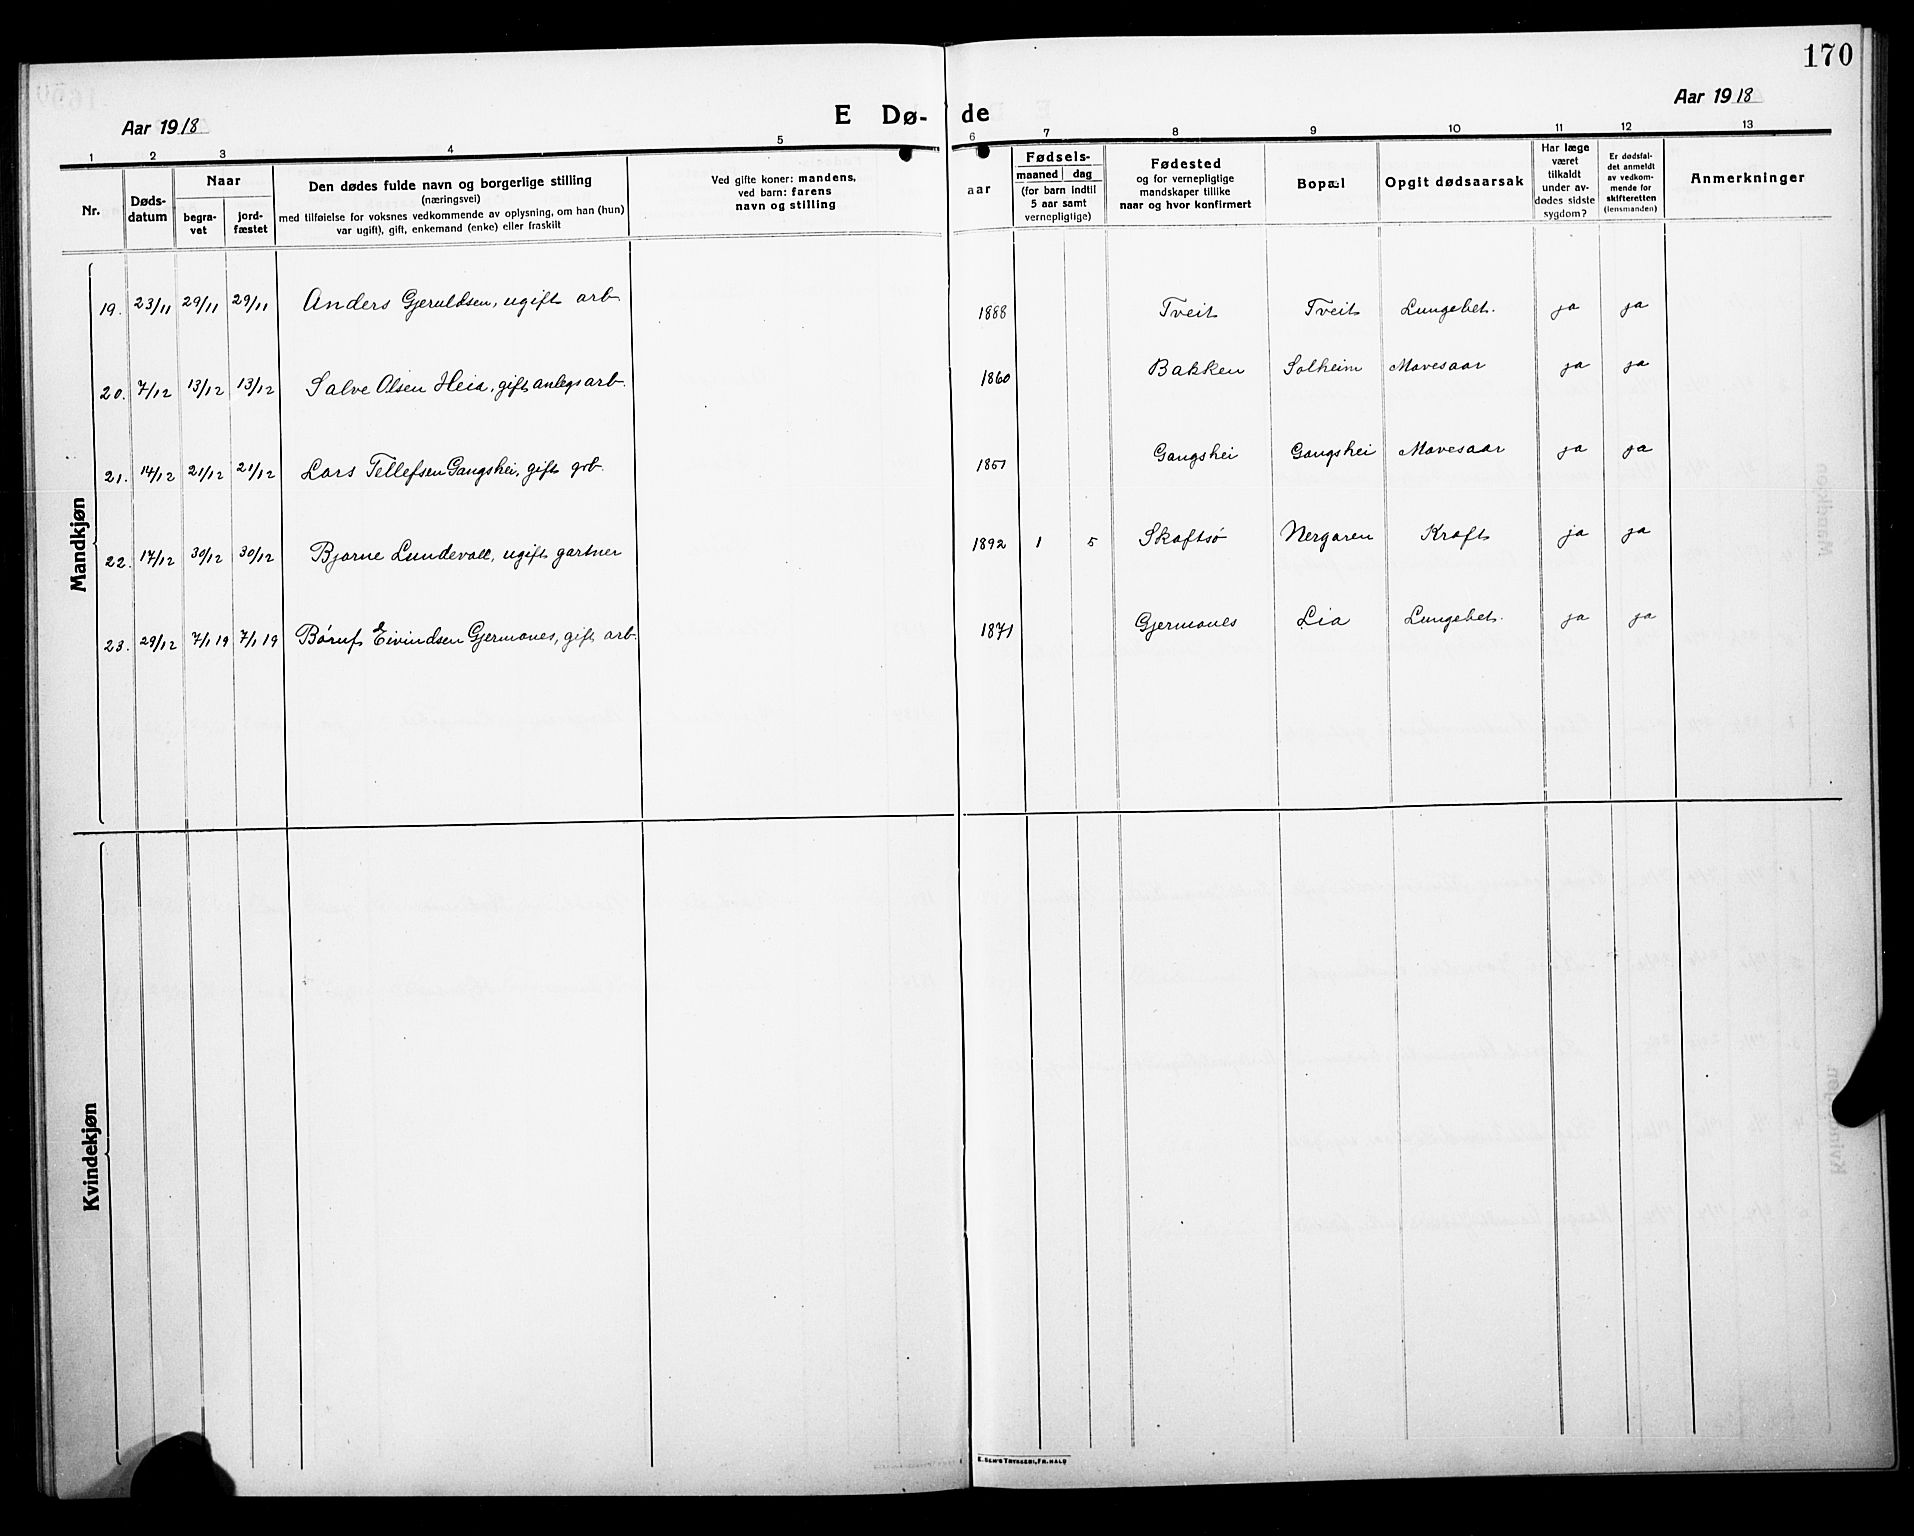 170
Aar 1918
E Dø-
de
Aar 1918
1 2 3 4 5 6 7 8 9 10 11 12 13
Nr.
Døds-
datum
Naar
begra-
vet
jord-
fæstet
Den dødes fulde navn og borgerlige stilling
(næringsvei)
med tilføielse for voksnes vedkommende av oplysning, om han (hun)
var ugift), gift, enkemand (enke) eller fraskilt
Ved gifte koner: mandens,
ved barn: farens
navn og stilling
aar
Fødsels-
maaned dag
(for barn indtil
5 aar samt
vernepligtige)
Fødested
og for vernepligtige
mandskaper tillike
naar og hvor konfirmert
Bopæl
Opgit dødsaarsak
Har læge
været
tilkaldt
under av-
dødes sidste
sygdom?
Er dødsfal-
det anmeldt
av vedkom-
mende for
skifteretten
(lensmanden)
Anmerkninger
Mandkjøn
19. 23/11 29/11 29/11 Anders Gjeruldsen, ugift arb. 1888 Tveit Tveit Lungebet. ja ja
20. 7/12 13/12 13/12 Salve Olsen Heia, gift anlegsarb. 1860 Bakken Solheim Mavesaar ja ja
21. 14/12 21/12 21/12 Lars Tellefsen Gangshei, gift grb. 1851 Gangshei Gangshei Mavesaar ja ja
22. 17/12 30/12 30/12 Bjarne Lundevall, ugift gartner 1892 1 5 Skaftsø Nergaren Kræft ja ja
23. 29/12 7/1 19 7/1 19 Eivindsen Gjermanes, gift arb. 1871 Gjermanes Lia Lungebet. ja ja
Kvindekjøn
E. SEM'S TRYKKERI, FR.HALD